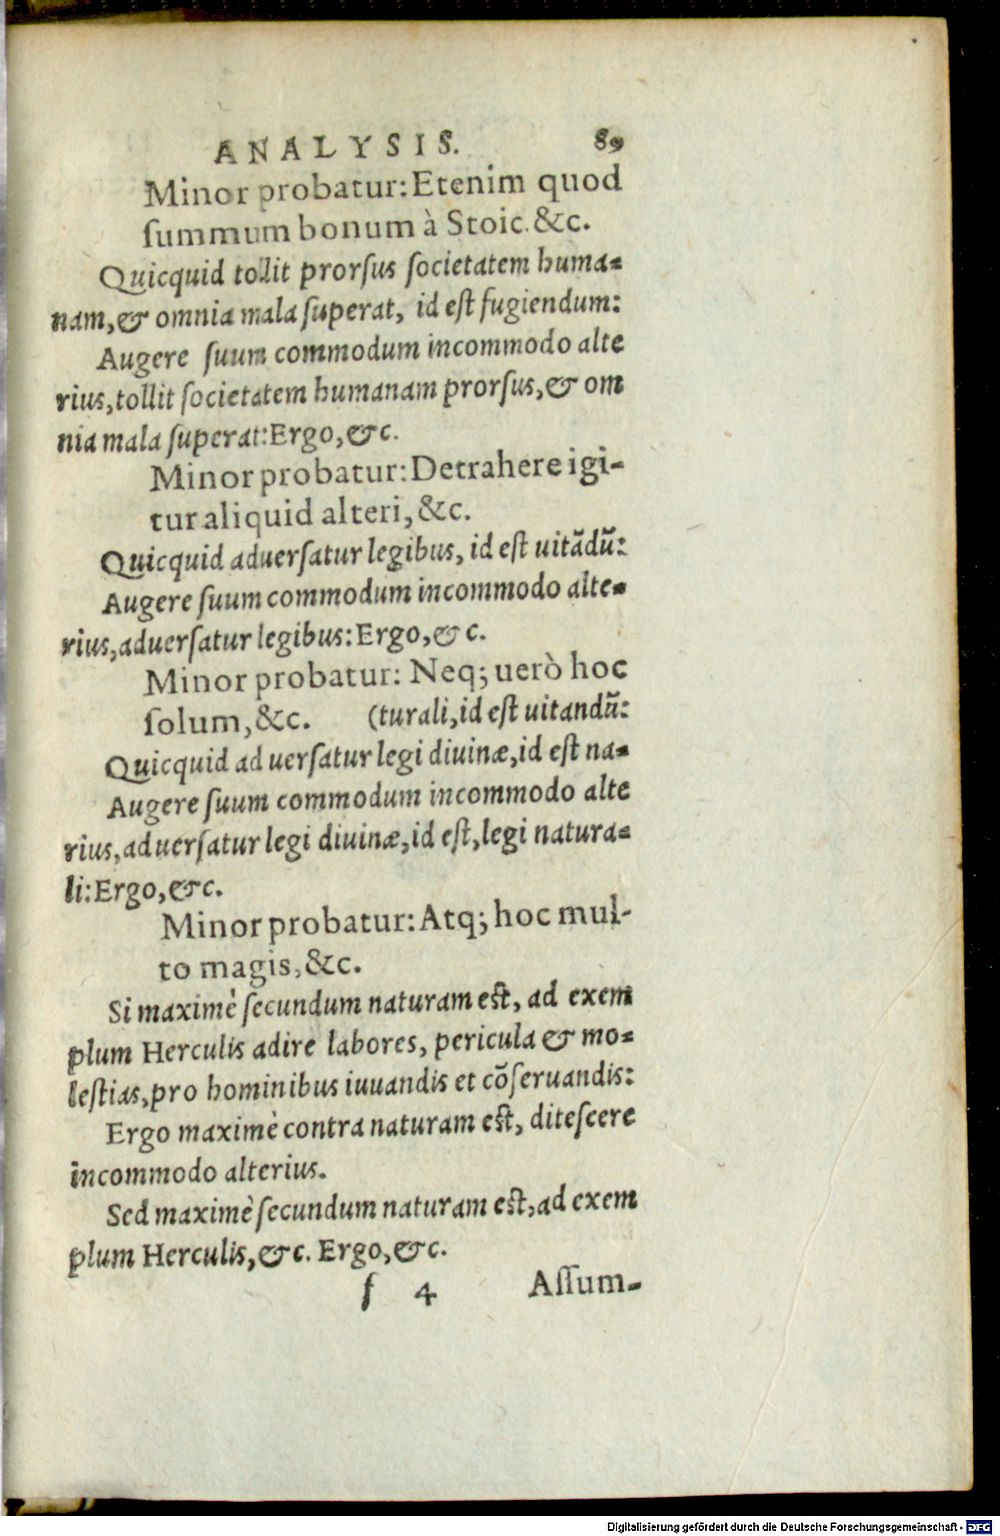 ANALYSIS. 89
Minor probatur: Etenim quod
ſummum bonum à Stoic. &c.
Quicquid tollit prorſus ſocietatem huma-
nam, & omnia mala ſuperat, id eſt fugiendum:
Augere ſuum commodum incommodo alte
rius, tollit ſocietatem humanam prorſus, & om
nia mala ſuperat: Ergo, &c.
Minor probatur: Detrahere igi-
tur aliquid alteri, &c.
Quicquid aduerſatur legibus, id eſt uitãdũ:
Augere ſuum commodum incommodo alte-
rius, aduerſatur legibus: Ergo, &c.
Minor probatur: Neq; uerò hoc
ſolum, &c. (turali, id eſt uitandũ:
Quicquid aduerſatur legi diuinæ, id eſt na-
Augere ſuum commodum incommodo alte
rius, aduerſatur legi diuinæ, id eſt, legi natura-
li: Ergo, &c.
Minor probatur: Atq; hoc mul-
to magis, &c.
Si maximè ſecundum naturam eſt, ad exem
plum Herculis adire labores, pericula & mo-
leſtias, pro hominibus iuuandis et cõſeruandis:
Ergo maximè contra naturam eſt, diteſcere
incommodo alterius.
Sed maximè ſecundum naturam eſt, ad exem
plum Herculis, &c. Ergo, &c.
f 4 Aſſum-
Digitalisierung gefördert durch die Deutsche Forschungsgemeinschaft - DFG